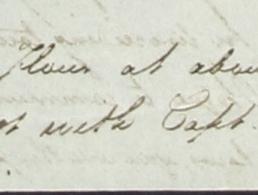 flour at abou
t with Capt.